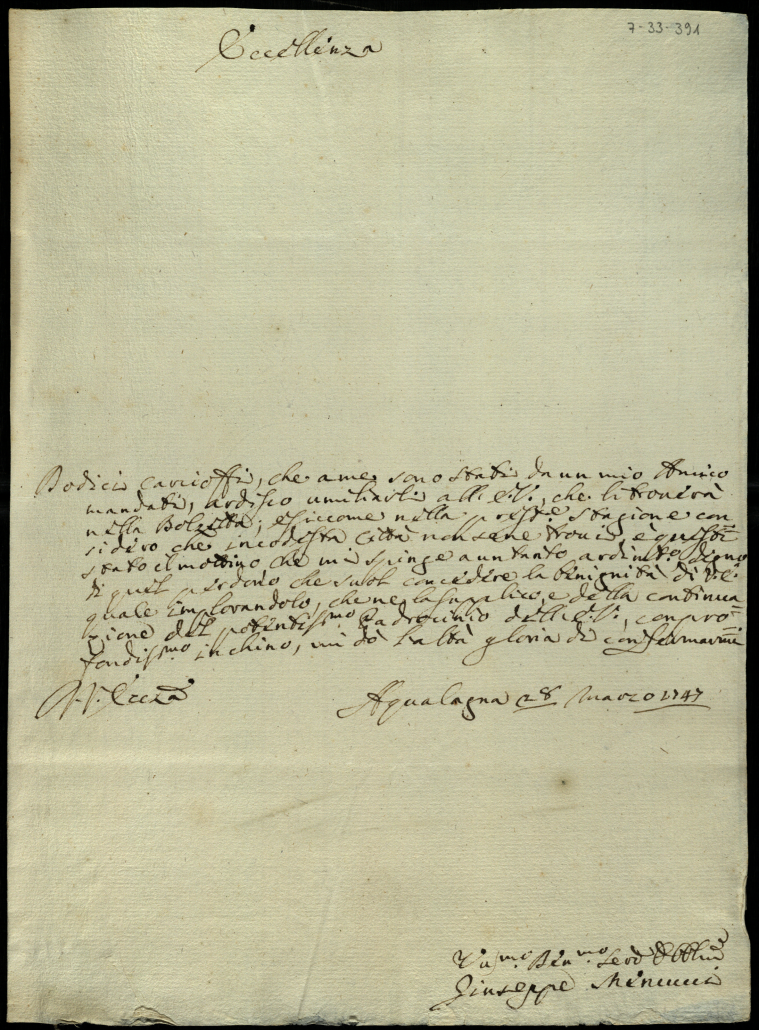 7-33-391
Eccellenza
Dodici Carcioffi, che a me sono stati da un mio Amico
mandati, ardisco umiliarli all' E.V., che li troverà
nella Bolgetta; e siccome nella pres.te stagione con=
sidero che in codesta Città non sene trovi, è questo
stato il mottivo che mi spinge a un tanto ardim.to degno
di quel perdono che suol concedere la benignità di V.E.
quale Implorandolo, che ne la supplico, e della continua=
zione del potentiss.mo Padrocinio dell' E.V., con pro=
fondiss.mo inchino, mi dò l'alta gloria di confermarmi
D. V. Eccza
Aqualagna 28 Marzo 1747
Giuseppe Minucci